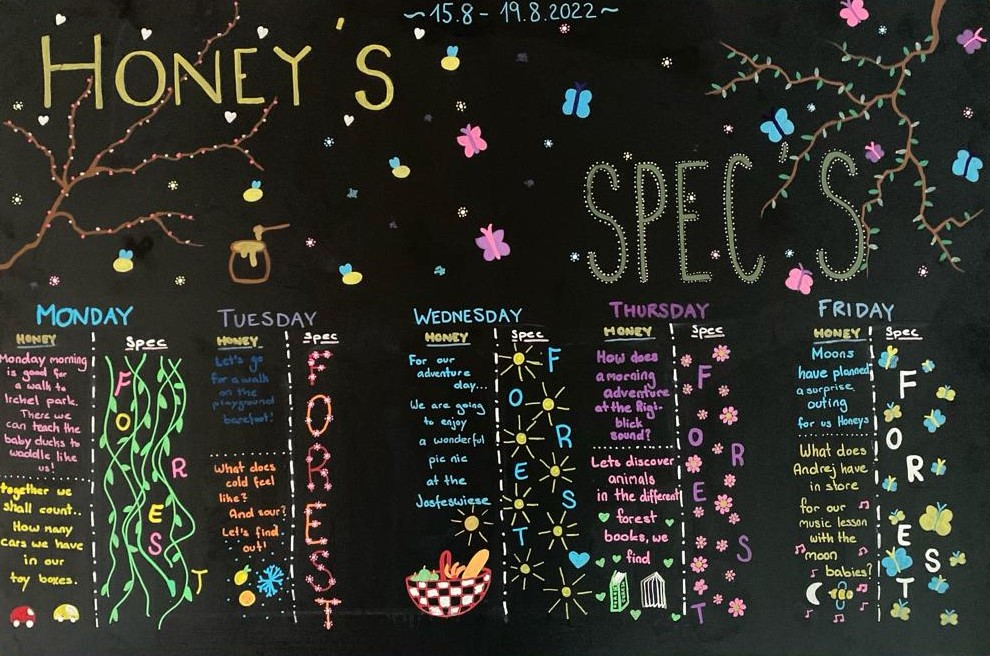 ~15.8 - 19.8.2022~
HONEY'S
SPEC'S
MONDAY
HONEY
Monday morning
is good for
a walk to
Irchel park.
There we
can teach the
baby ducks to
waddle like
us!
together we
shall count..
How many
cars we have
in our
toy boxes.
Spec
FOREST
TUESDAY
HONEY
Let's go
for a walk
on the
playground
barefoot!
What does
cold feel
like?
And sour?
Let's find
out!
Spec
FOREST
WEDNESDAY
HONEY
For our
adventure
day...
We are going
to enjoy
a wonderful
pic nic
at the
Josefswiese
Spec
FOREST
THURSDAY
HONEY
How does
a morning
adventure
at the Rigi-
blick
sound?
Lets discover
animals
in the different
forest
books, we
find
Spec
FOREST
FRIDAY
HONEY
Moons
have planned
a surprise
outing
for us Honeys
What does
Andrej have
in store
for our
music lesson
with the
moon
babies?
Spec
FOREST